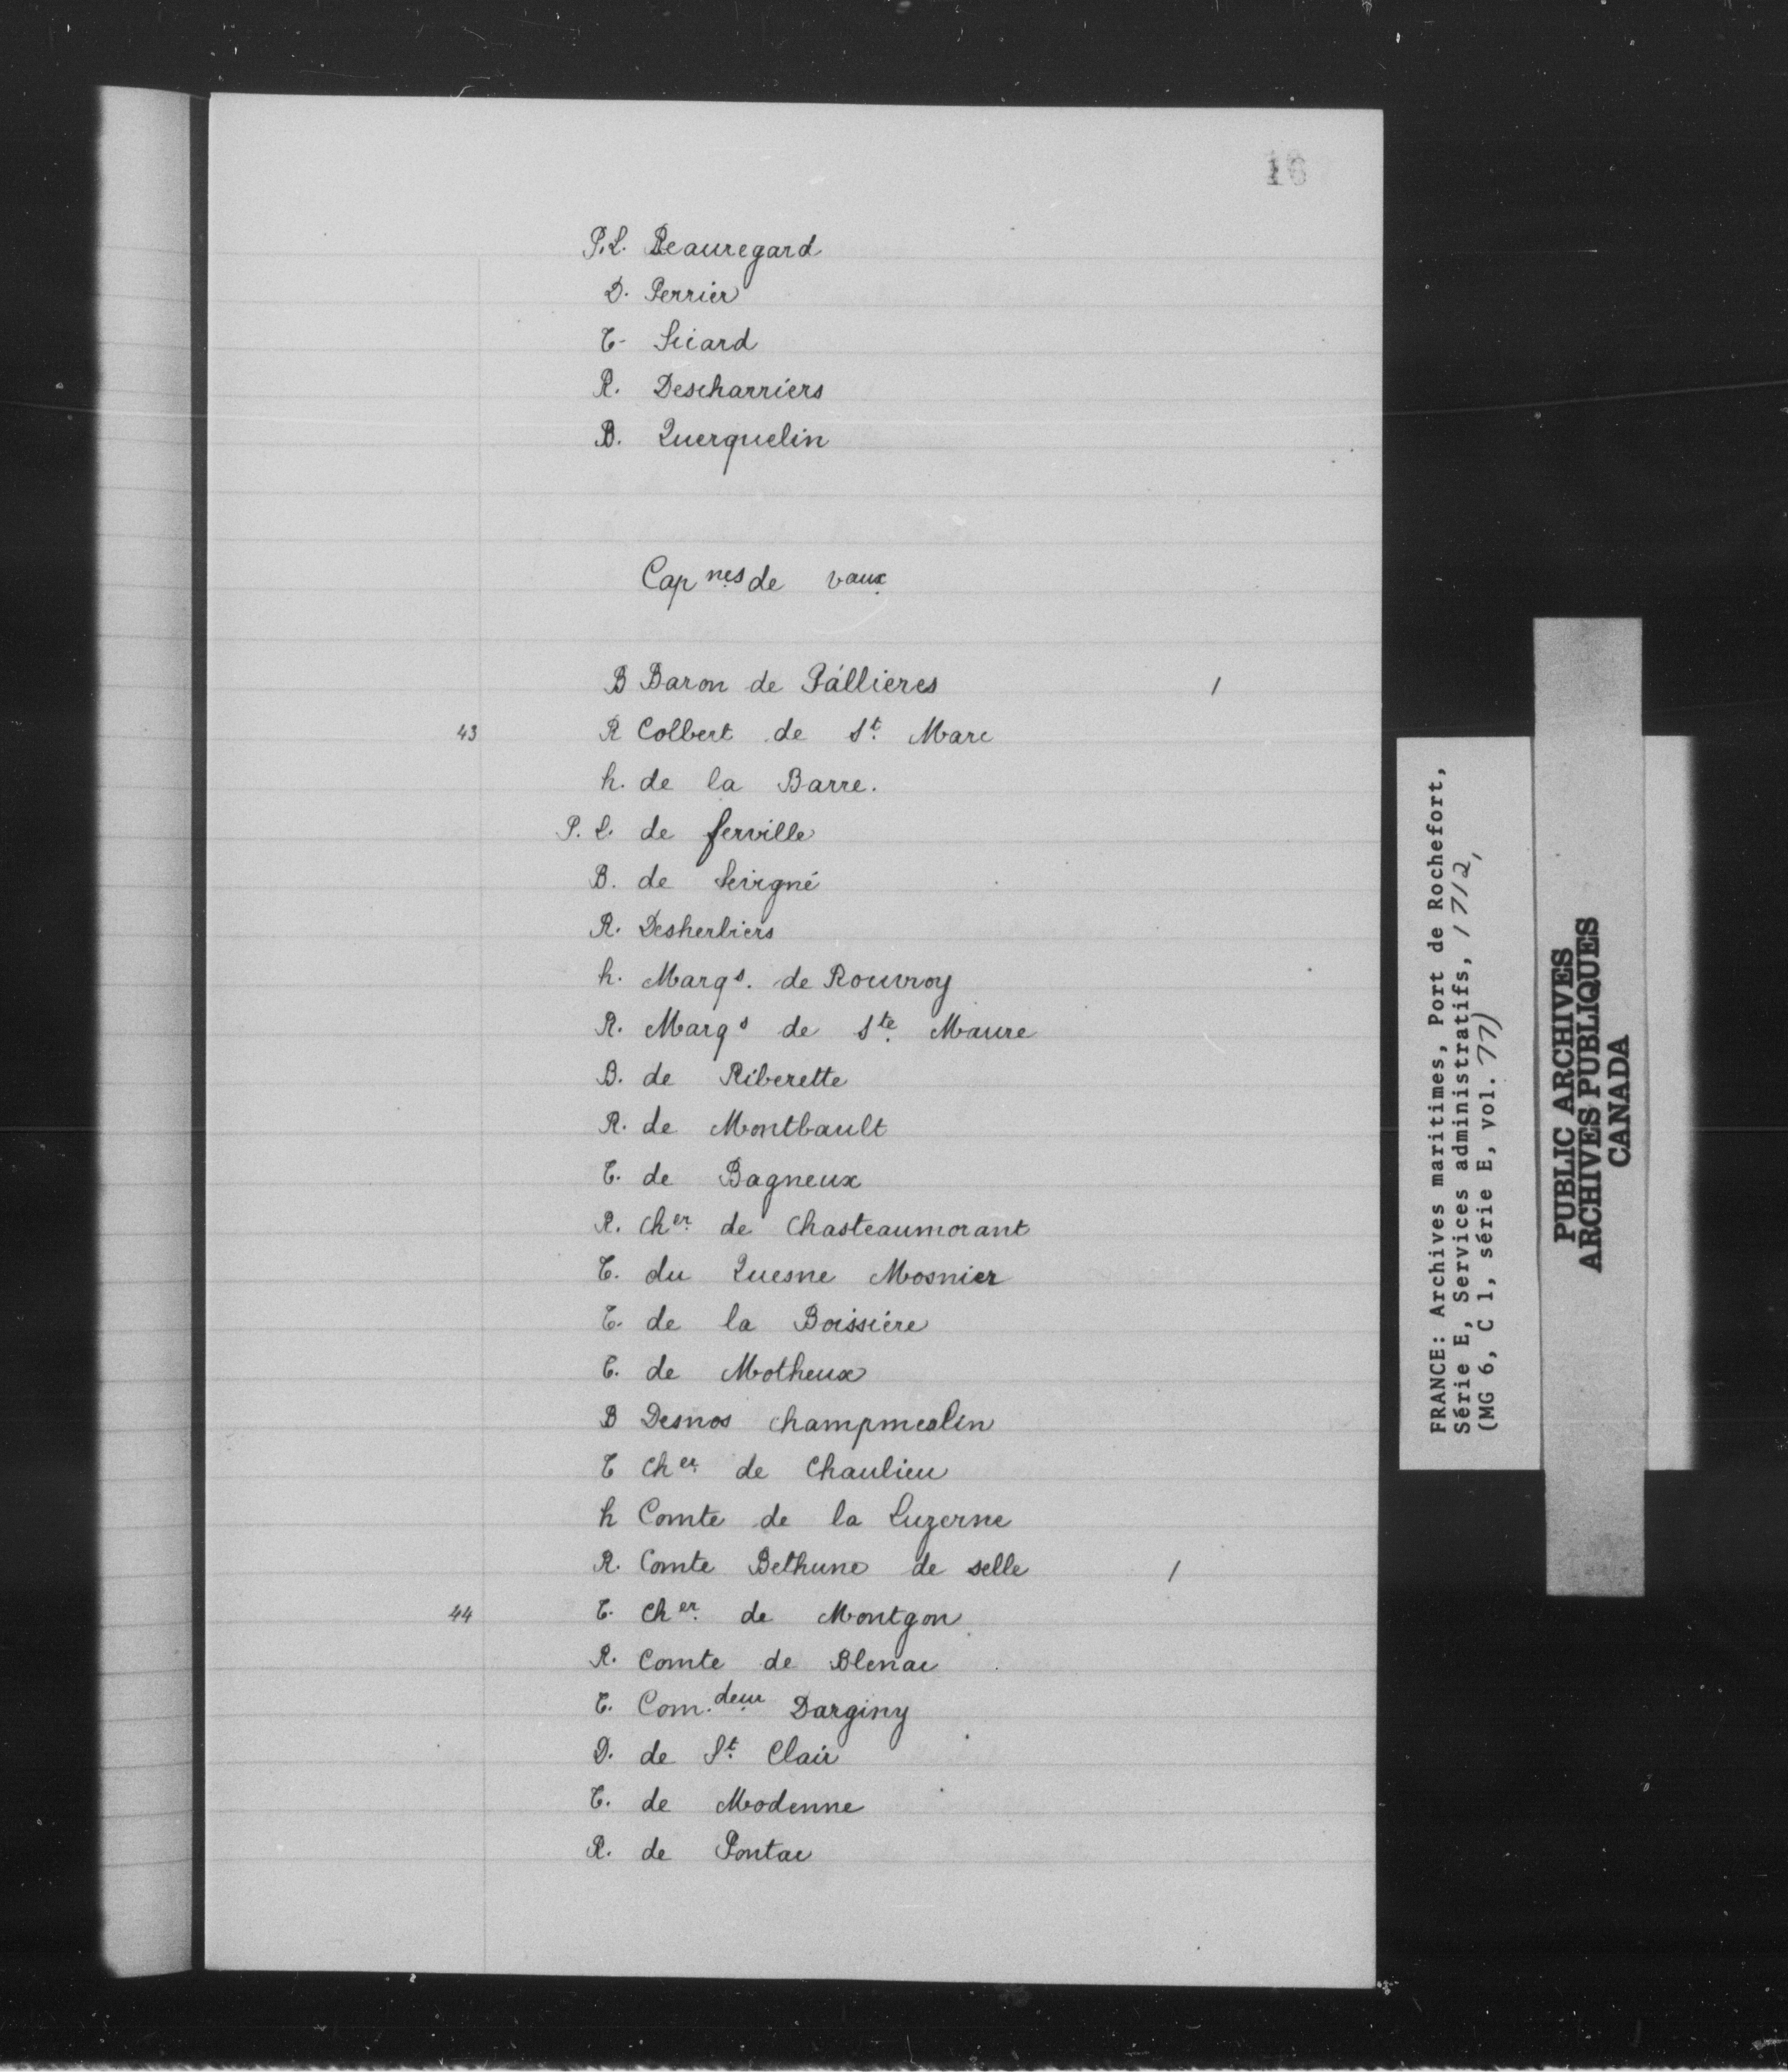 16
P.L. Beauregard
D. Perrier
T- Sicard
R. Descharriers
B. Querquelin
Cap nes de vaux
B Baron de Pállieres 1
43 R Colbert de St. Marc
h. de la Barre.
P. L. de ferville
B. de Sevigné
R. Desherbiers
h. Marqs. de Rouvroy
R. Marqs de Ste. Maure
B. de Riberette
R. de Montbault
T. de Bagneux
R. Cher. de Chasteaumorant
T. du Quesne Mosnier
T. de la Boissiére
T. de Motheux
B Desnos Champmeslin
T Cher. de Chaulieu
h Comte de la Luzerne
R. Comte Bethune de selle 1
44 T. Cher. de Montgon
R. Comte de Blenac
T. Com.deur Darginy
D. de St. Clair
T. de Modenne
R. de Pontac
FRANCE: Archives maritimes, Port de Rochefort,
Série E, Services administratifs, 1712,
(MG 6, C 1, série E, vol. 77)
PUBLIC ARCHIVES
ARCHIVES PUBLIQUES
CANADA